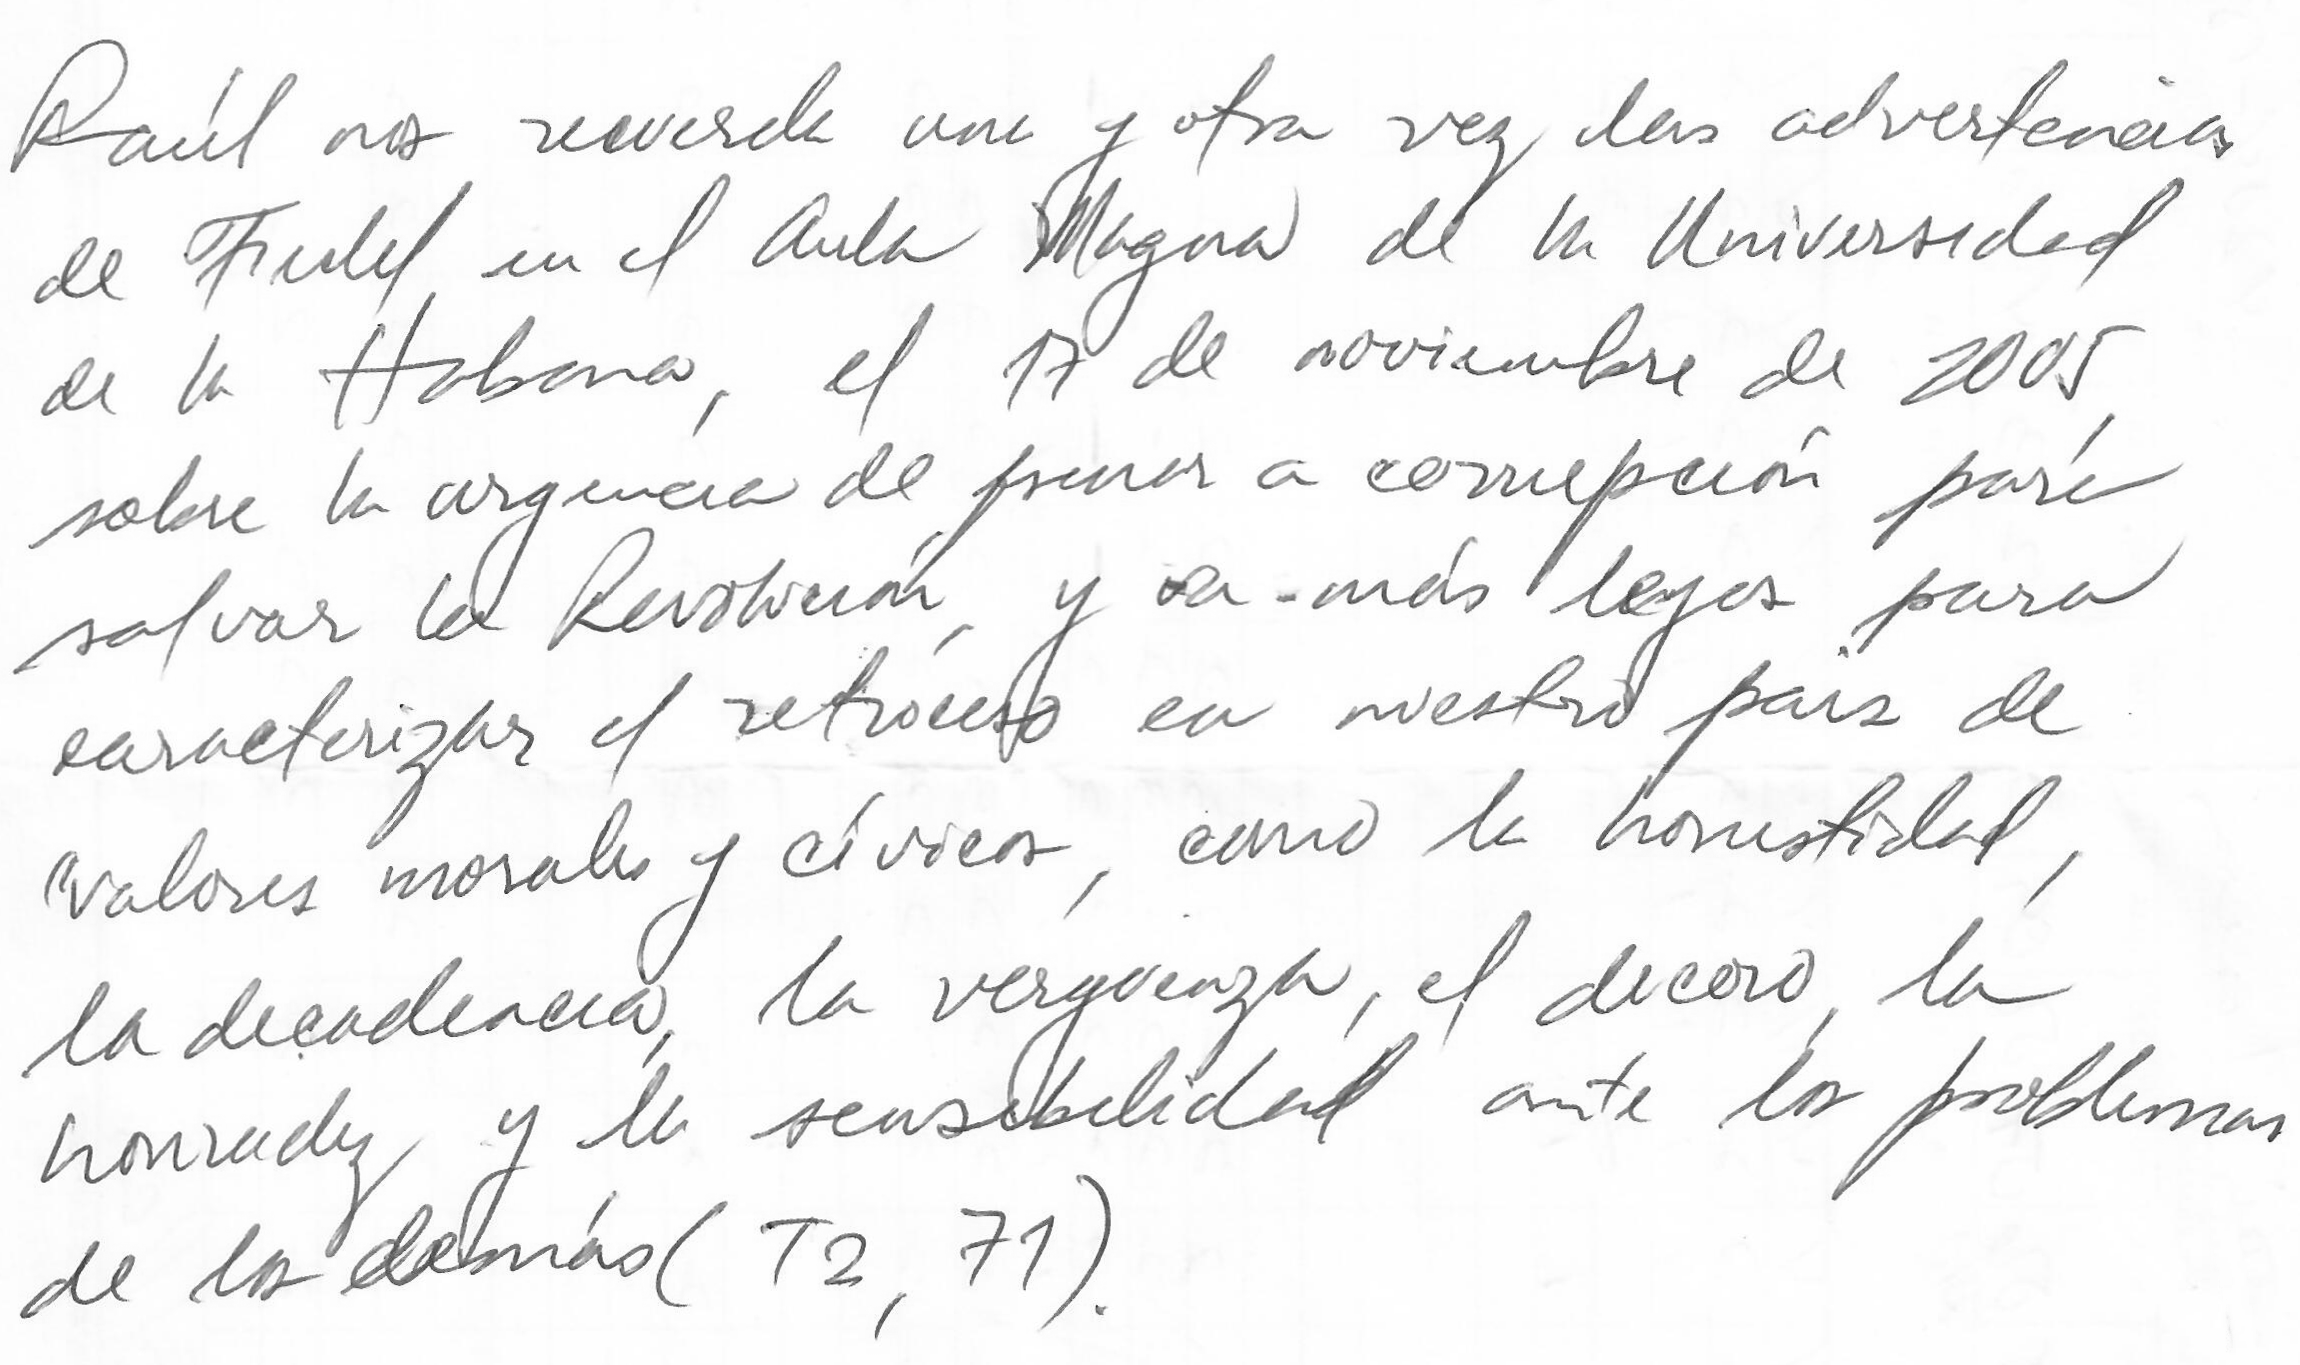 Raúl nos recuerda una y otra vez las advertencias
de Fidel en el Aula Magna de la Universidad
de la Habana, el 17 de noviembre de 2005,
sobre la urgencia de frenar a corrupción para
salvar la Revolución, y va más lejos para
caracterizar el retroceso en nuestro país de
"valores morales y cívicos, como la honestidad,
la decadencia, la vergüenza, el decoro, la
honradez y la sensibilidad ante los problemas
de los demás (T2, 71).